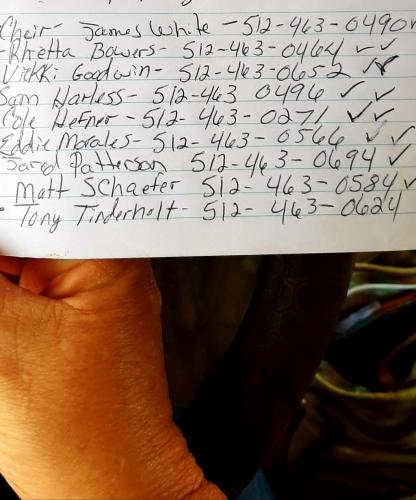 Chair- James White - 512-463-0490 ✓
-Rhetta Bowers- 512-463-0464 ✓✓
Vikki Goodwin- 512-463-0652 ✓✓
Sam Harless- 512-463 0496 ✓ ✓
Cole Hefner- 512-463-0271 ✓✓
Eddie Morales- 512-463-0566 ✓✓
Jared Patterson 512-463-0694 ✓
Matt Schaefer 512-463-0584 ✓
- Tony Tinderholt- 512-463-0624